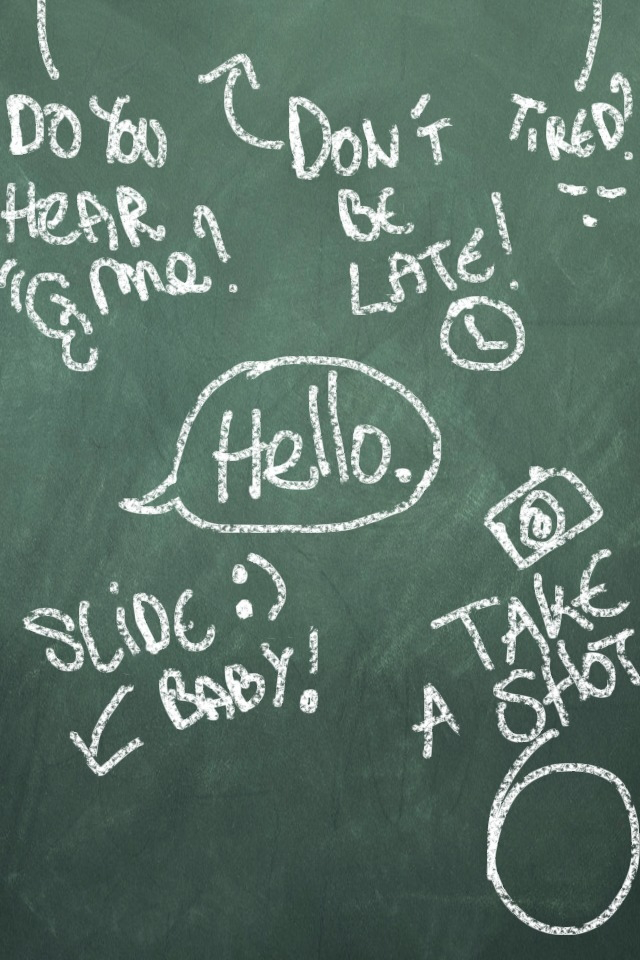 DO YOU
HEAR
me?
DON'T
BE
LATE!
TIRED?
Hello.
SLIDE :)
BABY!
TAKE
A SHOT